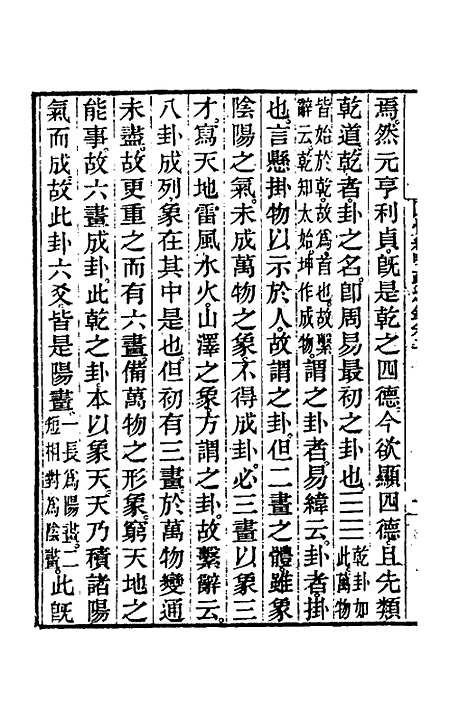 焉。然元亨利貞。既是乾之四德。今欲顯四德。且先類
乾道。乾者。卦之名。即周易最初之卦也。☰☰乾卦如此。萬物
皆始於乾。故爲首也。故繫辭云。乾知太始。坤作成物。謂之卦者。易緯云。卦者。掛
也。言懸掛物以示於人。故謂之卦。但二畫之體。雖象
陰陽之氣。未成萬物之象。不得成卦。必三畫以象三
才。寫天地雷風水火山澤之象。方謂之卦。故繫辭云。
八卦成列。象在其中是也。但初有三畫。於萬物變通
未盡。故更重之而有六畫。備萬物之形象。窮天地之
能事。故六畫成卦。此乾之卦。本以象天。天乃積諸陽
氣而成。故此卦六爻。皆是陽畫。一長爲陽畫。二短相對爲陰畫。此既